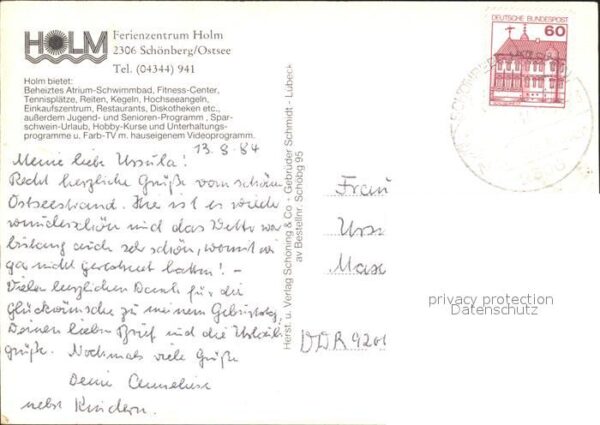 HOLM
Ferienzentrum Holm
2306 Schönberg/Ostsee
Tel. (04344) 941
Holm bietet:
Beheiztes Atrium-Schwimmbad, Fitness-Center,
Tennisplätze, Reiten, Kegeln, Hochseeangeln,
Einkaufszentrum, Restaurants, Diskotheken etc.,
außerdem Jugend- und Senioren-Programm, Spar-
schwein-Urlaub, Hobby-Kurse und Unterhaltungs-
programme u. Farb-TV m. hauseigenem Videoprogramm.
13.8.84
Meine liebe Ursula!
Recht herzliche Grüße vom schönen
Ostseestrand. Hier ist es wieder
wunderschön und das Wetter war
bislang auch sehr schön, womit wir
gar nicht gerechnet hatten! -
Vielen herzlichen Dank für die
Glückwünsche zu meinem Geburtstag,
Deinen lieben Brief und die Urlaubs
grüße. Nochmals viele Grüße
Deine Anneliese
nebst Kindern.
Herst. u. Verlag Schöning & Co - Gebrüder Schmidt - Lübeck
av Bestellnr. Schöbg 95
DEUTSCHE BUNDESPOST
60
Frau
Urs
Max
DDR 920
privacy protection
Datenschutz